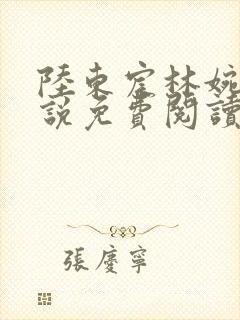 陸東宦林婉
說免費閱讀
張慶寧